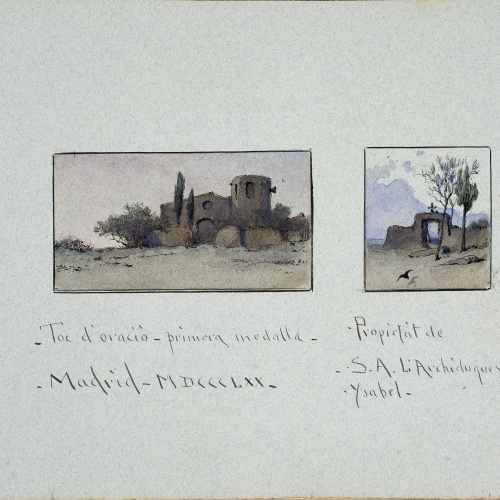 - Toc d'oració - primera medalla -
- Madrid - MDCCCLXX -
- Propietat de
- S. A. L'Archiduquesa
- Ysabel -